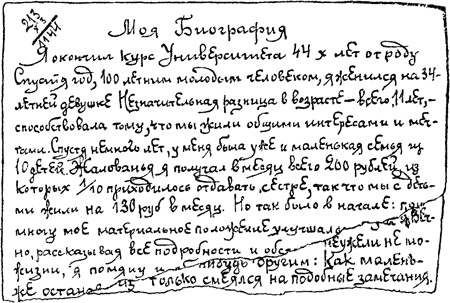 213
x 3
1144
Моя Биография
Я окончил курс Университета 44 х лет от роду
Спустя год, 100 летним молодым человеком, я женился на 34-
летней девушке Незначительная разница в возрасте – всего 11 лет, –
способствовала тому, что мы жили общими интересами и меч-
тами. Спустя немного лет, у меня была уже и маленькая семья из
10 детей. Жалованья я получал в месяц всего 200 рублей, из
которых 1/10 приходилось отдавать, сестре, так что мы с деть
ми жили на 130 руб в месяц. Но так было в начале:
многу мое материальное положение улучшало
но, рассказывая все подробности и неужели не мо-
жизни, я помяну и нибудь другим: Как малень-
же останов только смеялся на подобные замечания.